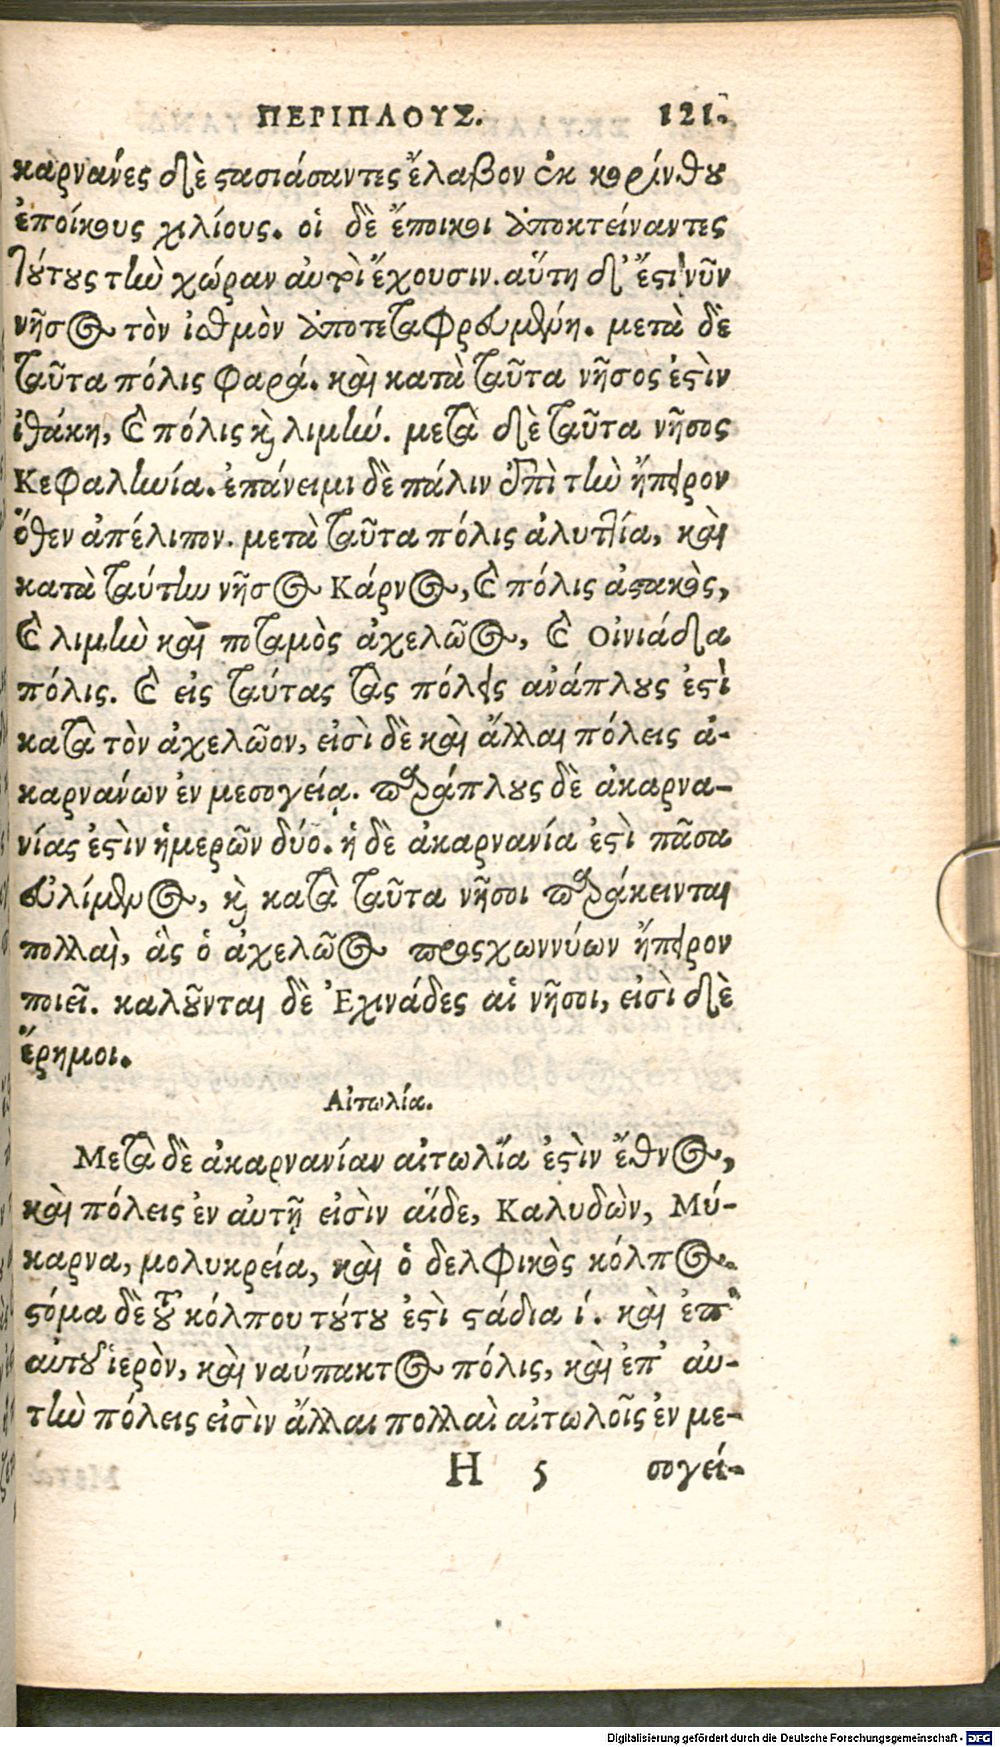 ΠΕΡΙΠΛΟΥΣ. 121.
καρνάνες δὲ στασιάσαντες ἔλαβον ἐκ κορίνθου
ἐποίκους χιλίους. οἱ δὲ ἔποικοι ἀποκτείναντες
τούτους τὴν χώραν αὐτοὶ ἔχουσιν. αὕτη δ' ἔστι νῦν
νῆσος τὸν ἰσθμὸν ἀποτεταφρευμένη. μετὰ δὲ
ταῦτα πόλις Φαρά. καὶ κατὰ ταῦτα νῆσος ἐστὶν
ἰθάκη, καὶ πόλις καὶ λιμήν. μετὰ δὲ ταῦτα νῆσος
Κεφαληνία. ἐπάνειμι δὲ πάλιν ἐπὶ τὴν ἤπειρον
ὅθεν ἀπέλιπον. μετὰ ταῦτα πόλις ἀλυτία, καὶ
κατὰ ταύτην νῆσος Κάρνος, καὶ πόλις ἀστακὸς,
καὶ λιμὴν καὶ ποταμὸς ἀχελῶος, καὶ Οἰνιάδα
πόλις. καὶ εἰς ταύτας τὰς πόλεις ἀνάπλους ἐστὶ
κατὰ τὸν ἀχελῶον, εἰσὶ δὲ καὶ ἄλλαι πόλεις ἀ-
καρνάνων ἐν μεσογείᾳ. παράπλους δὲ ἀκαρνα-
νίας ἐστὶν ἡμερῶν δύο. ἡ δὲ ἀκαρνανία ἐστὶ πᾶσα
εὐλίμενος, καὶ κατὰ ταῦτα νῆσοι παράκεινται
πολλαὶ, ἃς ὁ ἀχελῶος προσχωννύων ἤπειρον
ποιεῖ. καλοῦνται δὲ Ἐχινάδες αἱ νῆσοι, εἰσὶ δὲ
ἔρημοι.
Αἰτωλία.
Μετὰ δὲ ἀκαρνανίαν αἰτωλία ἐστὶν ἔθνος,
καὶ πόλεις ἐν αὐτῇ εἰσὶν αἵδε, Καλυδὼν, Μύ-
καρνα, μολυκρεία, καὶ ὁ δελφικὸς κόλπος.
στόμα δὲ τοῦ κόλπου τούτου ἐστὶ στάδια ί. καὶ ἐπ'
αὐτοῦ ἱερὸν, καὶ ναύπακτος πόλις, καὶ ἐπ' αὐ-
τὴν πόλεις εἰσὶν ἄλλαι πολλαὶ αἰτωλοῖς ἐν με-
Η 5 σογεί-
Digitalisierung gefördert durch die Deutsche Forschungsgemeinschaft - DFG